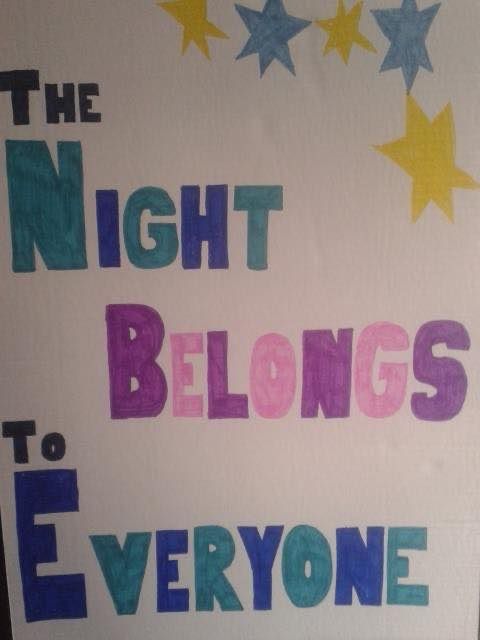 THE
NIGHT
BELONGS
TO
EVERYONE